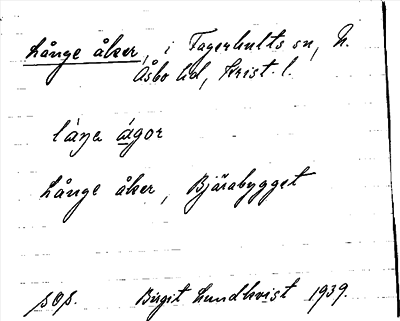 Långe åker, i Fagerhults sn, N.
Åsbo hd, Krist. l.
Långe åker, Bjärabygget
Birgit Lundkvist 1939.